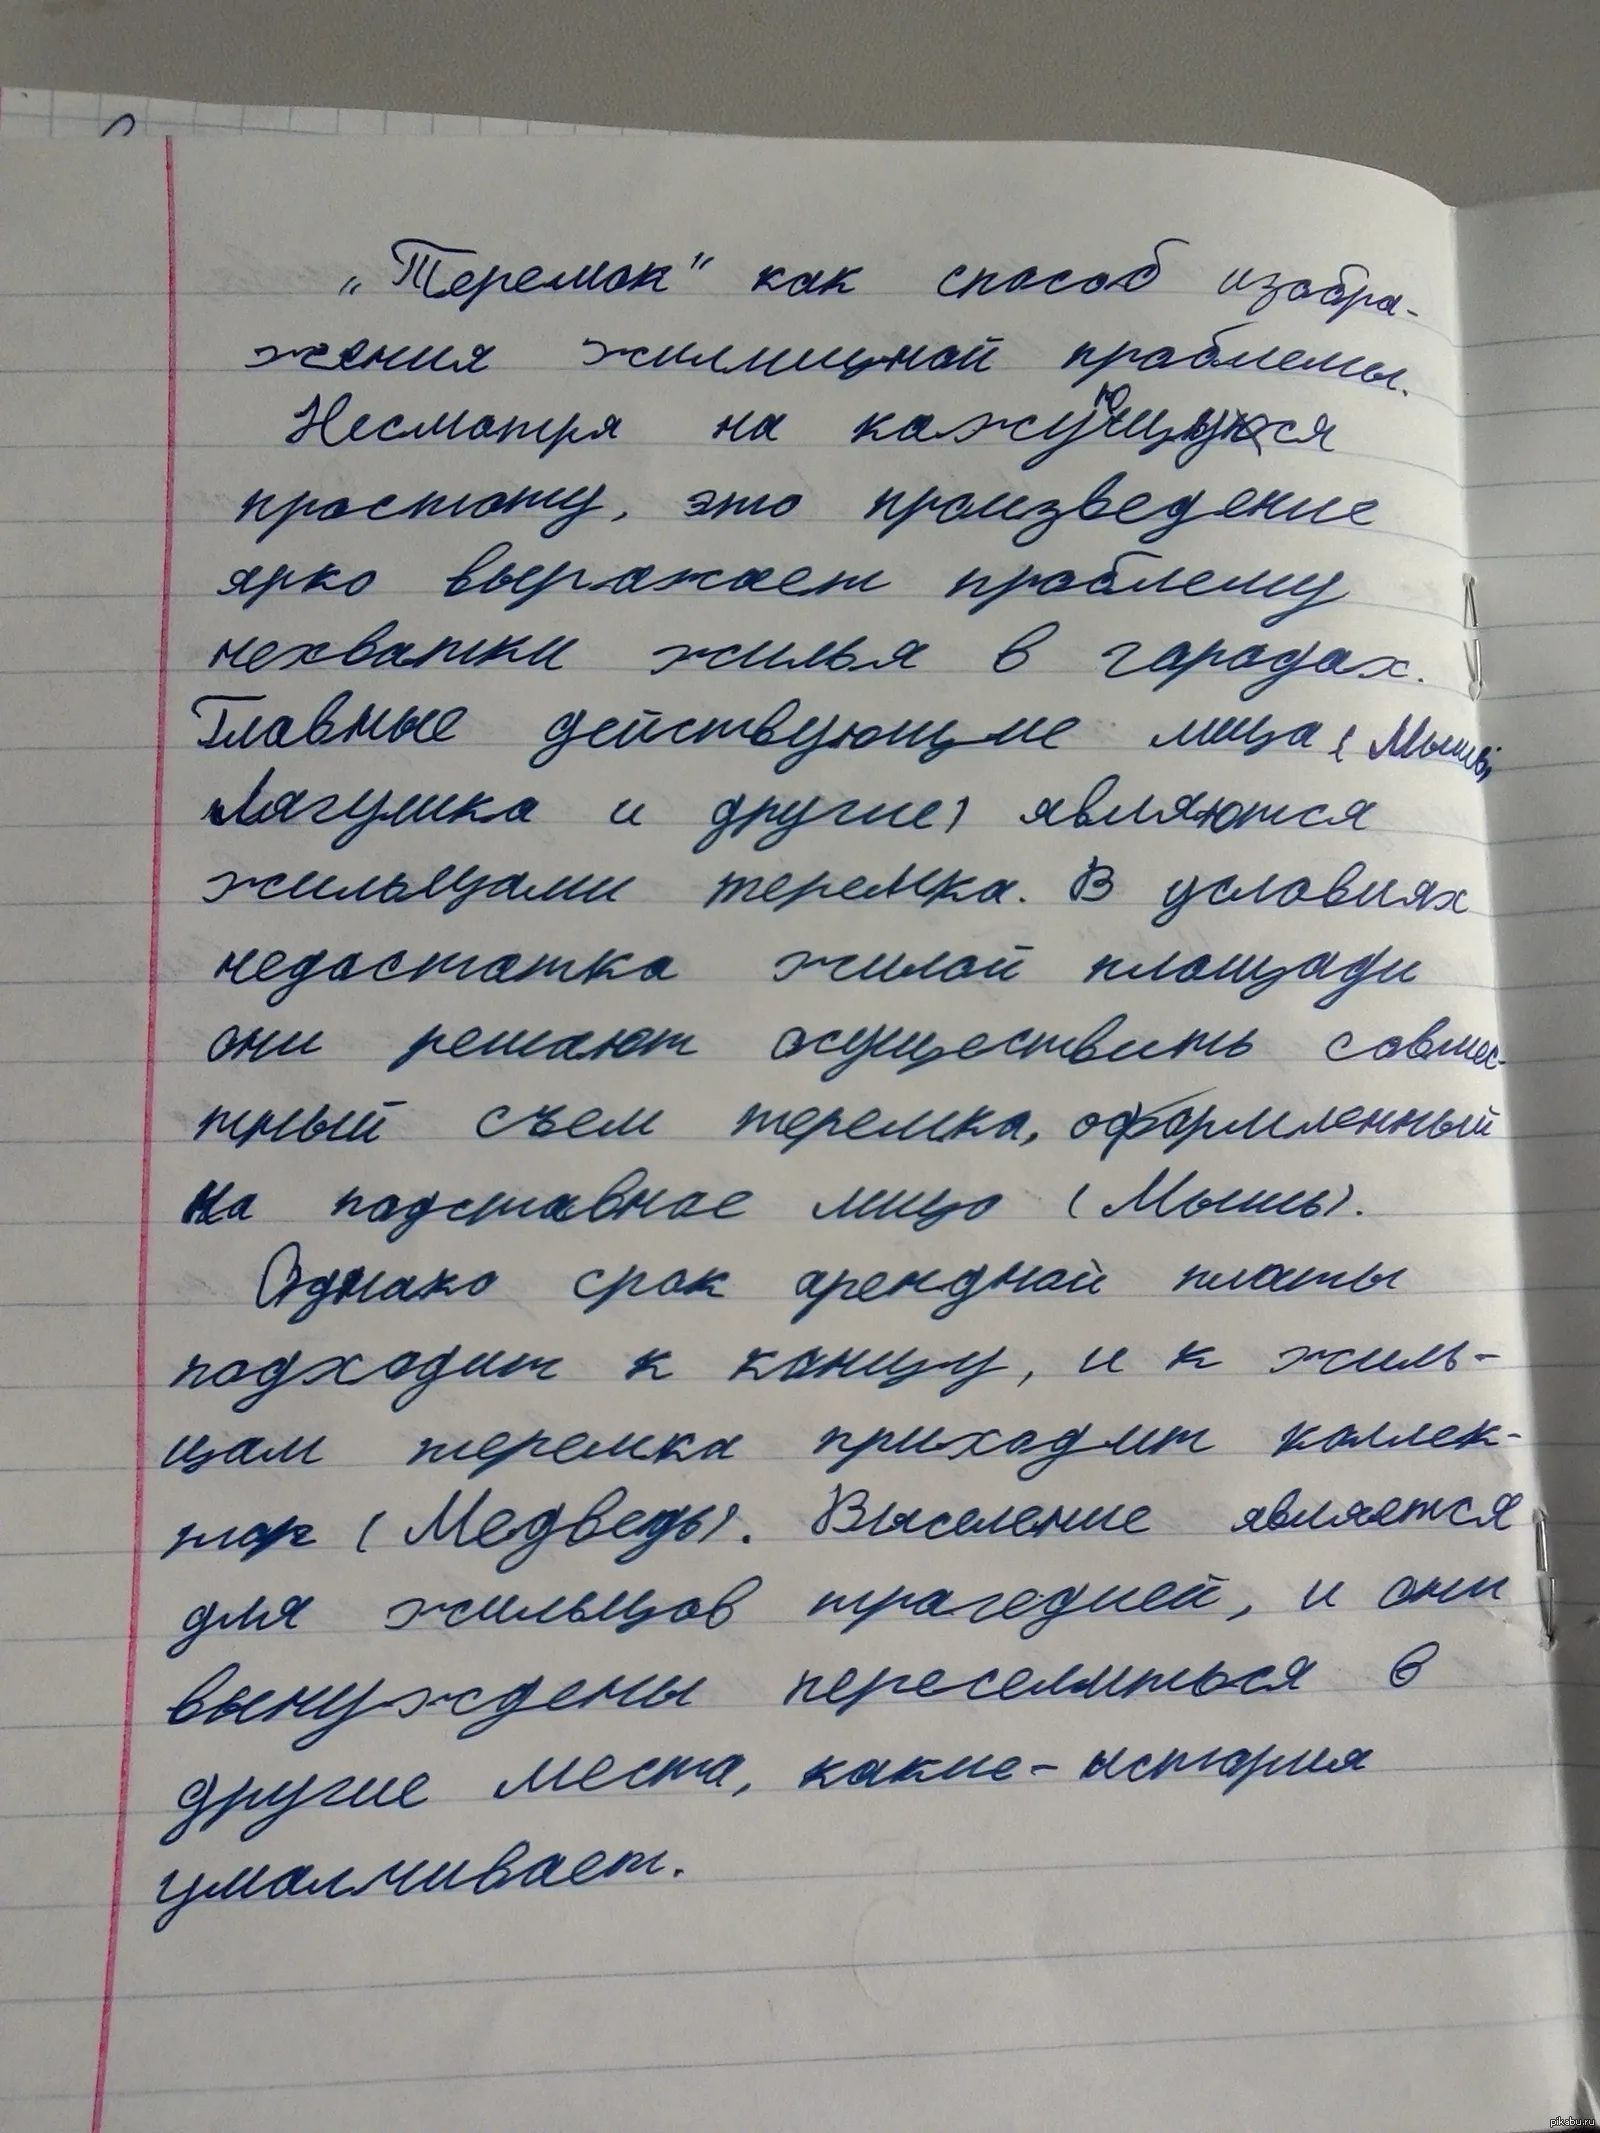 „Теремок" как способ изобра-
жения жилищной проблемы.
Несмотря на кажущуюся
простоту, это произведение
ярко выражает проблему
нехватки жилья в городах.
Главные действующие лица (Мышь,
Лягушка и другие) являются
жильцами теремка. В условиях
недостатка жилой площади
они решают осуществить совмес-
тный съем теремка, оформленный
на подставное лицо (Мышь).
Однако срок арендной платы
подходит к концу, и к жиль-
цам теремка приходит коллек-
тор (Медведь). Выселение является
для жильцов трагедией, и они
вынуждены переселиться в
другие места, какие - история
умалчивает.
pikabu.ru